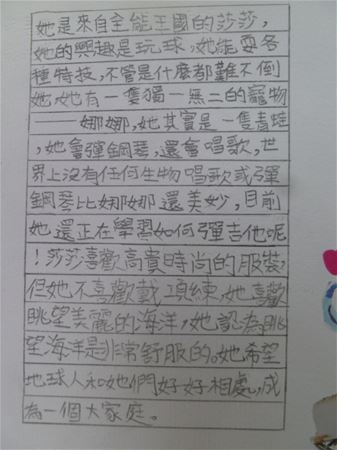 她是來自全能王國的莎莎，
她的興趣是玩球，她能耍各
種特技，不管是什麼都難不倒
她，她有一隻獨一無二的寵物
——娜娜，她其實是一隻青蛙
，她會彈鋼琴，還會唱歌，世
界上沒有任何生物唱歌或彈
鋼琴比娜娜還美妙，目前
她還正在學習如何彈吉他呢
！莎莎喜歡高貴時尚的服裝，
但她不喜歡戴項練，她喜歡
眺望美麗的海洋，她認為眺
望海洋是非常舒服的。她希望
地球人和她們好好相處，成
為一個大家庭。